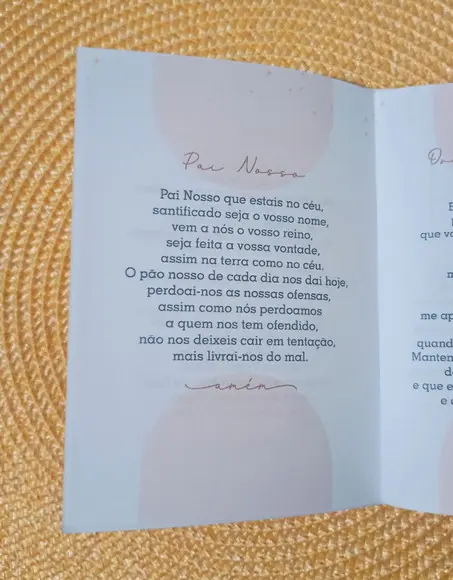 Pai Nosso
Pai Nosso que estais no céu,
santificado seja o vosso nome,
vem a nós o vosso reino,
seja feita a vossa vontade,
assim na terra como no céu.
O pão nosso de cada dia nos dai hoje,
perdoai-nos as nossas ofensas,
assim como nós perdoamos
a quem nos tem ofendido,
não nos deixeis cair em tentação,
mais livrai-nos do mal.
amém
me ap
quand
e que e